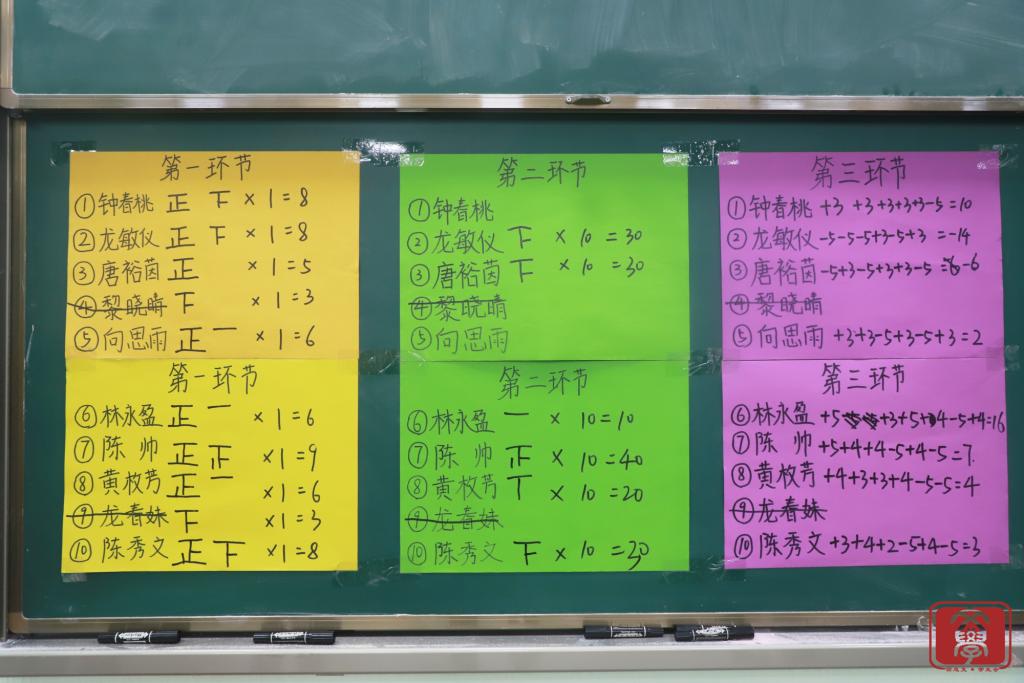 第一环节
①钟春桃 正 下 ×1=8
②龙敏仪 正 下 ×1=8
③唐裕茵 正 ×1=5
④黎晓晴 下 ×1=3
⑤向思雨 正 一 ×1=6
第一环节
⑥林永盈 正 一 ×1=6
⑦陈帅 正 正 ×1=9
⑧黄枚芳 正 一 ×1=6
⑨龙春妹 下 ×1=3
⑩陈秀文 正 下 ×1=8
第二环节
①钟春桃
②龙敏仪 下 × 10 =30
③唐裕茵 下 × 10 =30
④黎晓晴
⑤向思雨
第二环节
⑥林永盈 一 × 10=10
⑦陈帅 正 × 10 =40
⑧黄枚芳 丅 × 10 =20
⑨龙春妹
⑩陈秀文 下 × 10 =30
第三环节
①钟春桃 +3 +3+3+3+3-5=10
②龙敏仪 -5-5-5+3-5+3 =-14
③唐裕茵 -5+3-5+3+3-5 =-6
④黎晓晴
⑤向思雨 +3+3-5+3-5+3=2
第三环节
⑥林永盈 +5 +3+5+4-5+4=16
⑦陈帅 +5+4+4-5+4-5=7
⑧黄枚芳 +4+3+3+4-5-5=4
⑨龙春妹
⑩陈秀文 +3+4+2-5+4-5=3